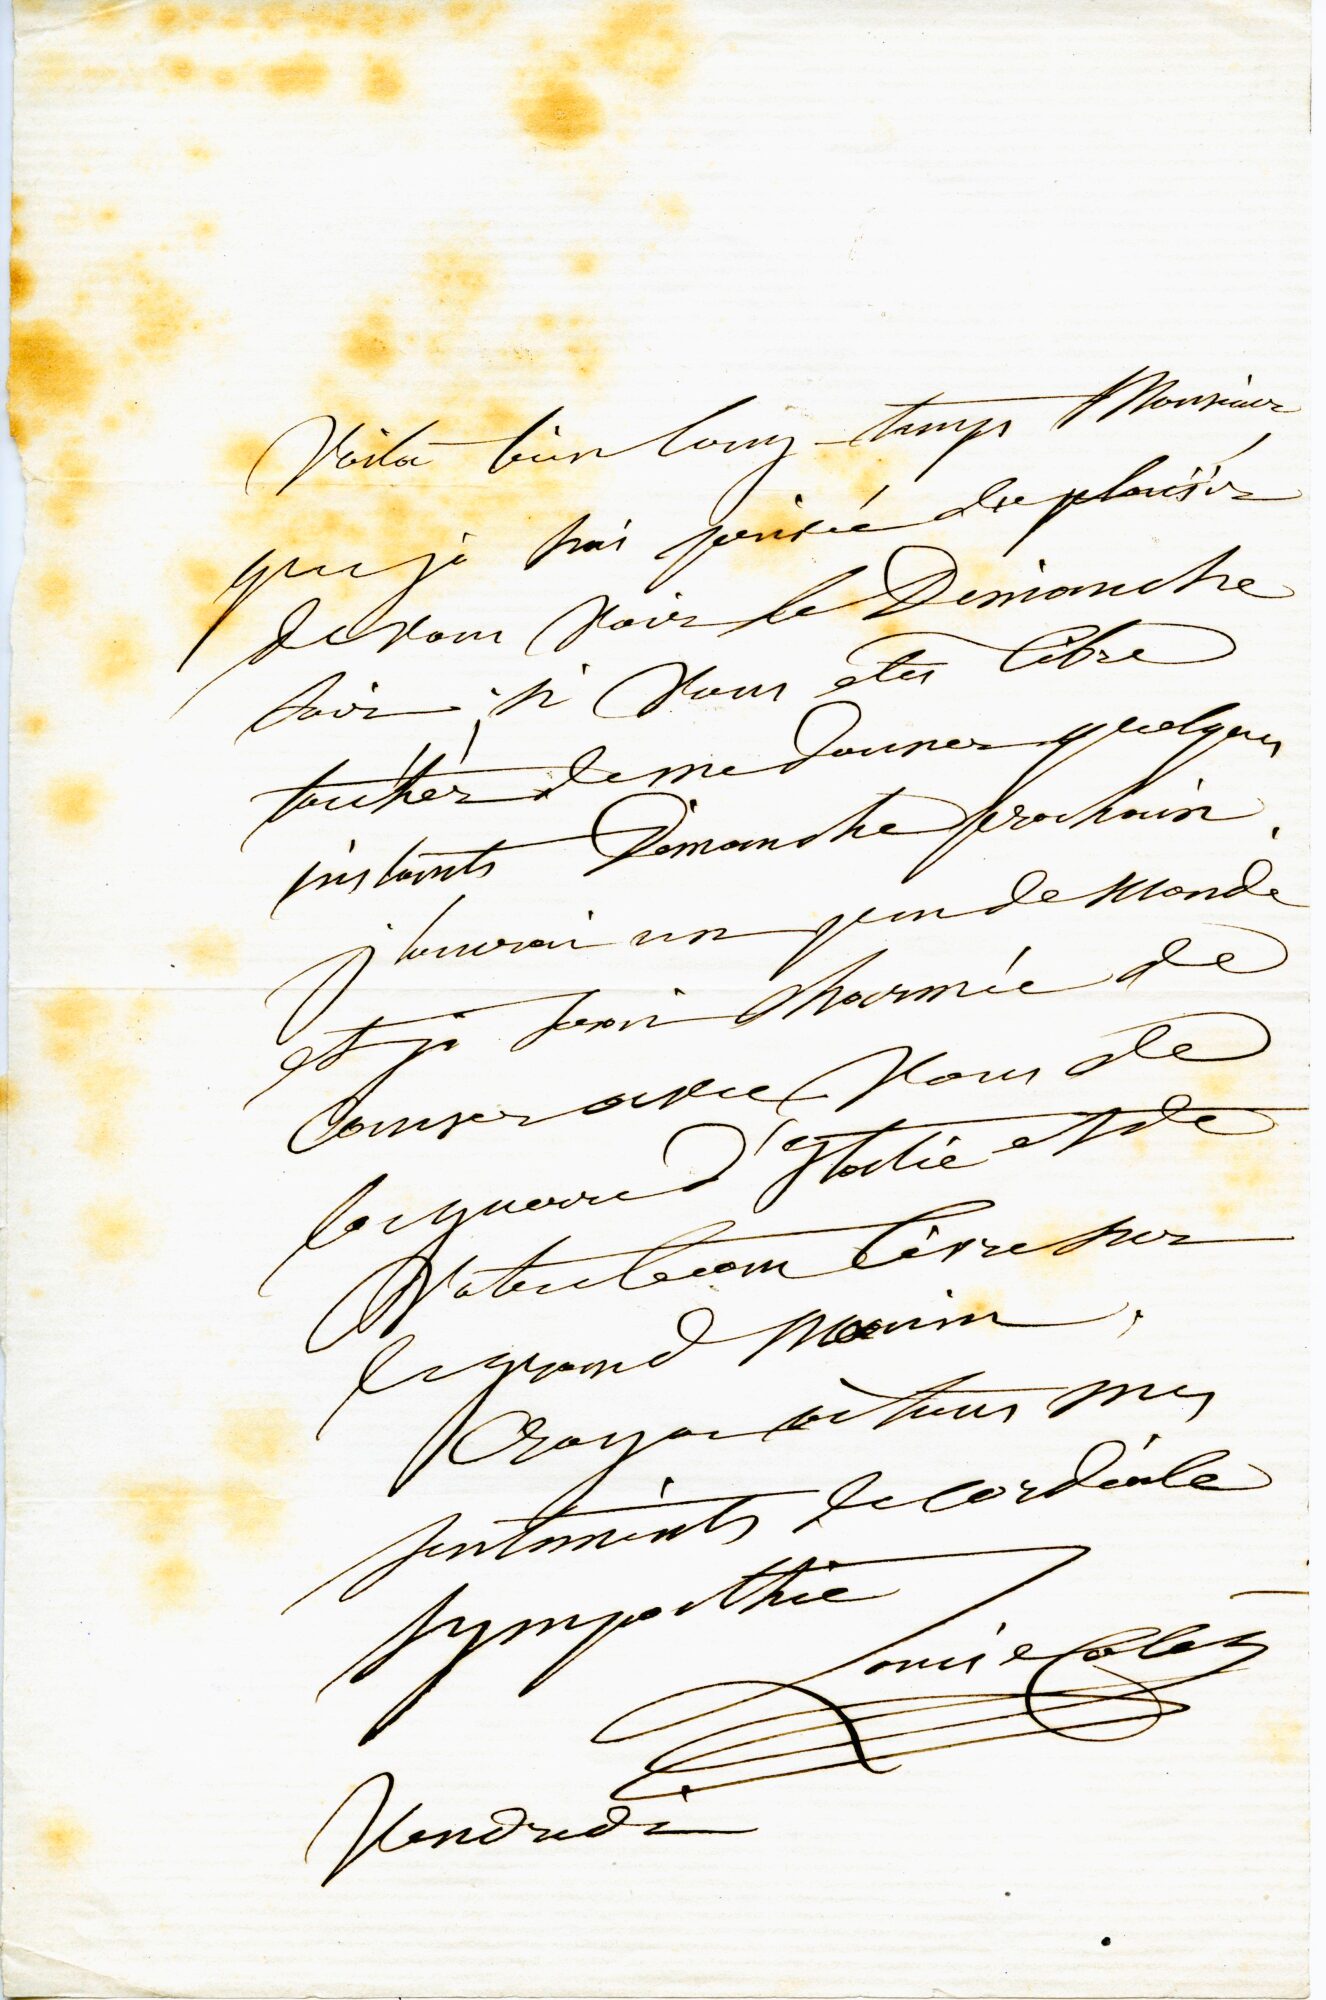 Voila bien long-temps Monsieur
que je n'ai pensée de plaisir
de vous voir le Dimanche
soir; si vous etes libre
tachéz de me donner quelques
instants Dimanche prochain.
j'aurai un peu de monde
et je serai charmée de
causer avec vous de
la guerre d'Italie et de
votre beau livre sur
le grand
Croyez à tous mes
sentiments de cordiale
sympathie
Louise Colet
Vendredi